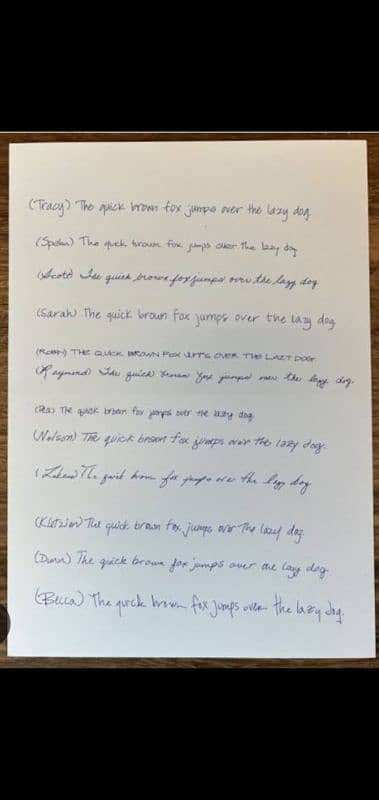 (Tracy) The quick brown fox jumps over the lazy dog
The quick brown fox jumps over the lazy dog
(Scott) The quick brown fox jumps over the lazy dog
(Sarah) The quick brown fox jumps over the lazy dog
(ROBIN) THE QUICK BROWN FOX OVER THE LAZY DOG
(Raymond) The quick brown fox jumped over the lazy dog.
The quick brown fox jumps over the lazy dog
(Nelson) The quick brown fox jumps over the lazy dog.
The quick brown fox jumps over the lazy dog
The quick brown fox jumps over the lazy dog.
(Dunn) The quick brown fox jumps over the lazy dog.
(Becca) The quick brown fox jumps over the lazy dog.